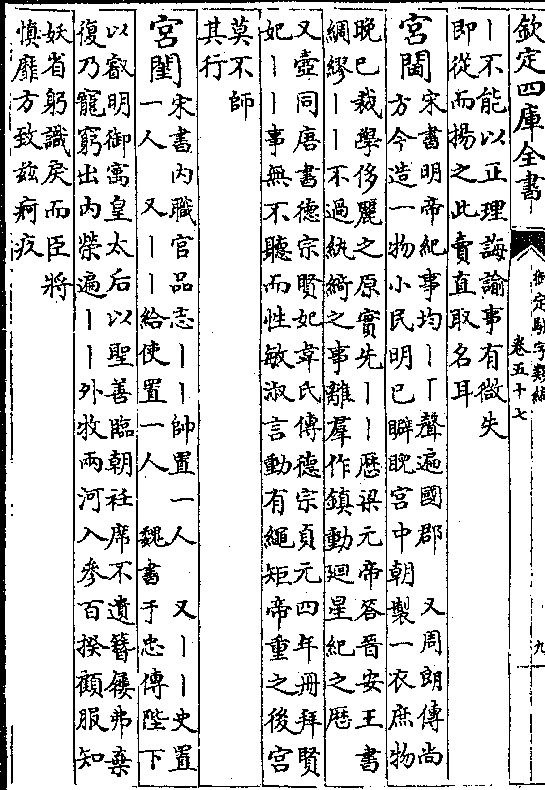 欽定四庫全書
御定駢字類編
卷五十七
九
丨不能以正理誨諭事有微失
即從而揚之此賣直取名耳
宮閫
宋書明帝紀事均丨丨聲遍國郡 又周朗傳尚
方今造一物小民明已睥睨宮中朝製一衣庶物
晚已裁學侈麗之原實先丨丨歷梁元帝答晉安王書
綢繆丨丨不過紈綺之事離羣作鎮動迴星紀之歷
又壼同唐書德宗賢妃韋氏傳德宗貞元四年冊拜賢
妃丨丨事無不聽而性敏淑言動有繩矩帝重之後宮
莫不師
其行
宮闈
宋書内職官品志丨丨帥置一人 又丨丨史置
一人 又丨丨給使置一人 魏書于忠傳陛下
以叡明御寓皇太后以聖善臨朝衽席不遺簪屨弗棄
復乃寵窮出内榮遍丨丨外牧兩河入參百揆顧服知
妖省躬識戾而臣將
慎靡方致兹痾疚